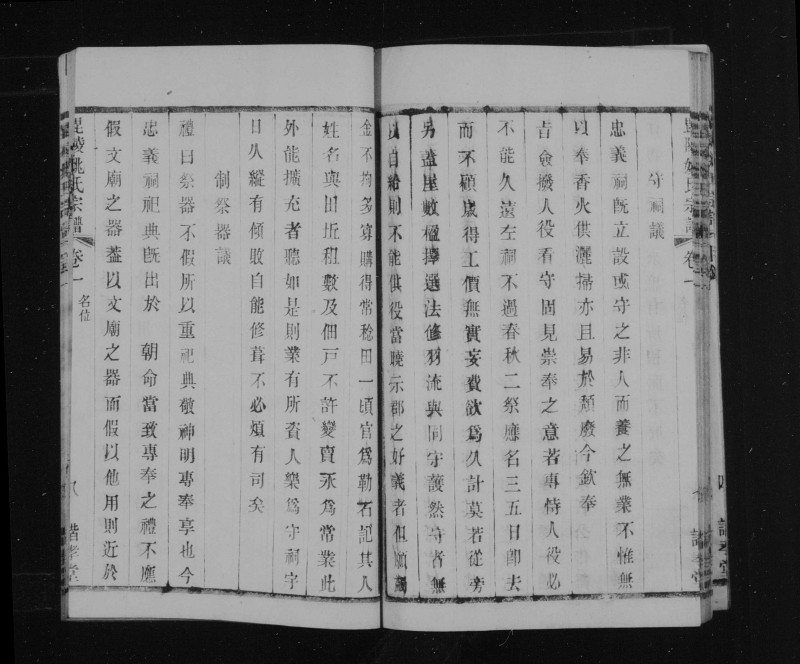 守祠議
忠義祠旣立設或守之非人而養之無業不惟無
以奉香火供灑掃亦且易於頹廢今欽奉
旨僉撥人役看守固見崇奉之意若專恃人役必
不能久遠在祠不過春秋二祭應名三五日卽去
而不顧歲得工價無實妄費欲爲久計莫若從旁
另蓋屋數楹擇選法修羽流與同守護然守者無
以自給則不能供役當曉示郡之好義者但願捐
金不拘多寡購得常稔田一頃官爲勒石記其人
姓名與田坵租數及佃戸不許變賣永爲常業此
外能擴充者聽如是則業有所資人樂爲守祠宇
日久縱有傾敗自能修葺不必煩有司矣
制祭器議
禮曰祭器不假所以重祀典敬神明專奉享也今
忠義祠祀典旣出於 朝命當致專奉之禮不應
假文廟之器蓋以文廟之器而假以他用則近於
毘陵姚氏宗譜 卷一 名位 八 諧孝堂